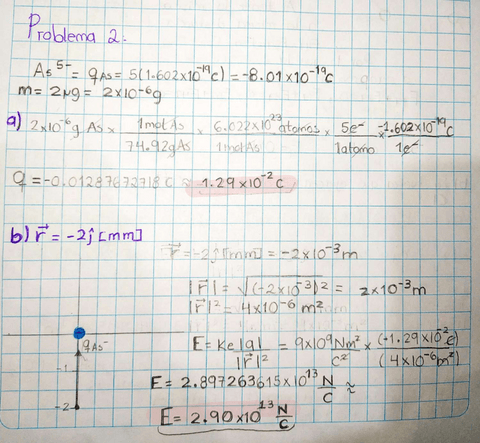 Problema 2.
As⁵⁻ = qAs = 5(1.602x10⁻¹⁹c) = -8.01x10⁻¹⁹c
m = 2μg = 2x10⁻⁶g
a) 2x10⁻⁶g As x 1molAs/74.92gAs x 6.022x10²³atomos/1molAs x 5e⁻/1atomo x -1.602x10⁻¹⁹C/1e⁻
q = -0.01287672718 C ≈ -1.29x10⁻²c
b) r⃗ = -2ĵ [mm]
r⃗ = -2ĵ [mm] = -2x10⁻³m
|r⃗| = √(-2x10⁻³)² = 2x10⁻³m
|r⃗|² = 4x10⁻⁶ m²
qAs⁻
-1
-2
E = Ke|q|/|r⃗|² = 9x10⁹Nm²/c² x (-1.29x10⁻²c)/(4x10⁻⁶m²)
E = 2.897263615x10¹³ N/C ≈
E = 2.90x10¹³ N/C